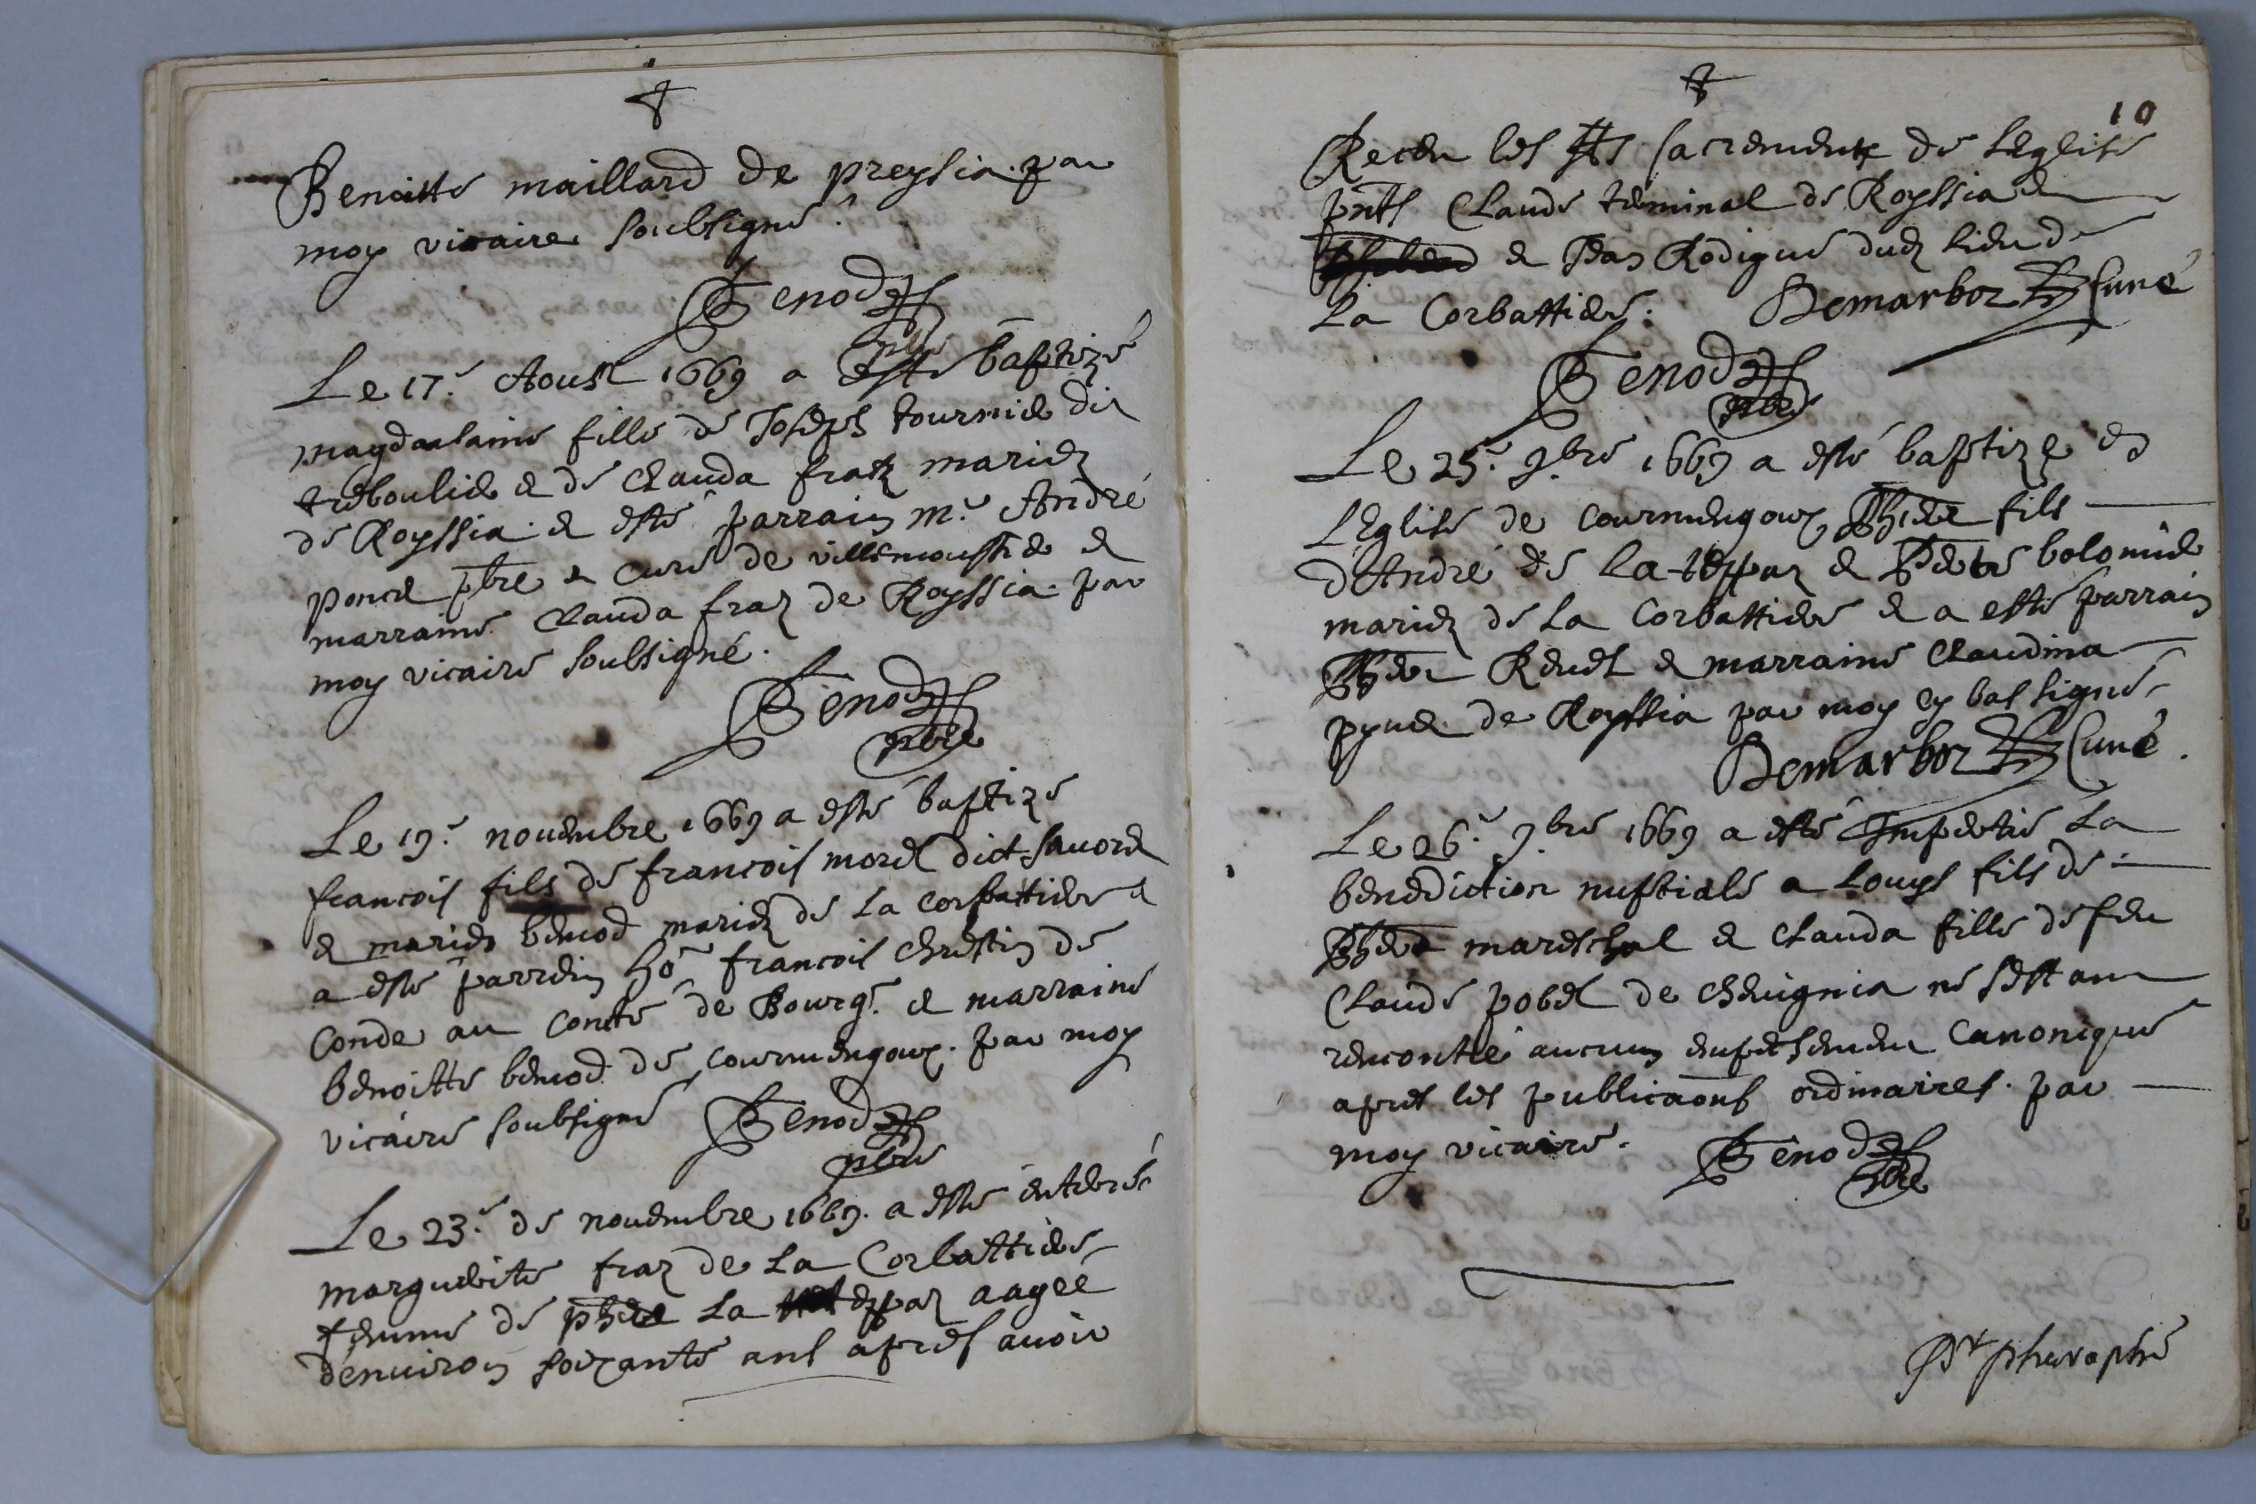 Benoitte maillard de preysia. par
moy vicaire soubsigné.
Benod
pbre
Le 17.e Aoust 1669 a esté baptizé
magdaalaine fille de Joseph tournier dit
treboulie et de Clauda fratz mariez
de Royssia. et esté parrain m.e André
poncet pbre et curé de villemoustier et
marraine Clauda fraz de Royssia. par
moy vicaire soubsigné.
Benod
pbre
Le 19.e nouembre 1669 a esté baptizé
francois fils de francois morel dict sauoret
et mariez benod mariez de la Corbattiere et
a esté parrein ho. francois Chrestin de
Conde au Conté de Bourg.e et marraine
benoitte benod de Courmengoux. par moy
vicaire soubsigné
Benod
pbre
Le 23.e de nouembre 1669. a esté enterré
marguerite fraz de La Corbattiere
femme de pbre La teppaz aagée
d'enuiron soixante ans apres auoir
10
Receu les Sts sacrements de LEglise
pnts Claude reminal de Royssia et
et Jean Rodigue dud lieu de
La Corbattiere.
Demarboz Curé
Benod
pbre
Le 25.e 9.bre 1669 a esté baptize en
LEglise de Courmengoux, Phbre fils
d'André de La-teppaz et Pbrte bolomier
mariez de la Corbattiere et a esté parrain
Phber Reuel et marraine Claudina
pynet de Royssia par moy cy bas signé
Demarboz Curé.
Le 26.e 9.bre 1669 a esté Impertie La
benediction nuptiale a Louys fils de
Phbert mareschal et Clauda fille de feu
Claude pobel de Cheuignia ne s'estant
rencontré aucun empeschement Canonique
apres les publicaons ordinaires. par
moy vicaire.
Benod
pbre
Pr pharaphé